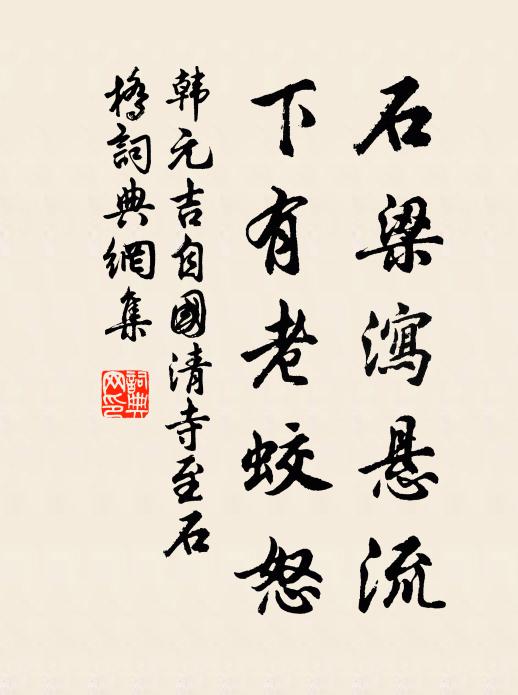 石梁瀉悬流
下有老蛟怒
韩元吉自國清寺至石
橋詞典網集
詞典
网印